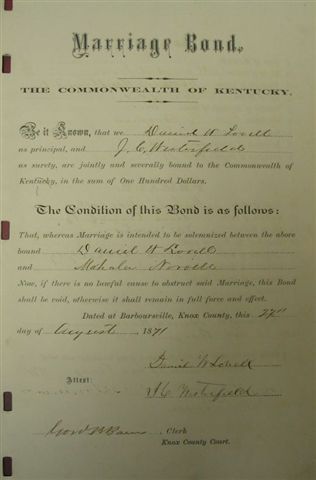 Marriage Bond.
THE COMMONWEALTH OF KENTUCKY.
Be it Known, that we Daniel W Lovell
as principal, and J. C. Westerfield
as surety, are jointly and severally bound to the Commonwealth of
Kentucky, in the sum of One Hundred Dollars.
The Condition of this Bond is as follows:
That, whereas Marriage is intended to be solemnized between the above
bound Daniel W Lovell
and Mahala
Now, if there is no lawful cause to obstruct said Marriage, this Bond
shall be void, otherwise it shall remain in full force and effect.
Dated at Barboursville, Knox County, this 27"
day of August 1871
Daniel W Lovell
J C Westerfield
Attest:
Clerk
Knox County Court.